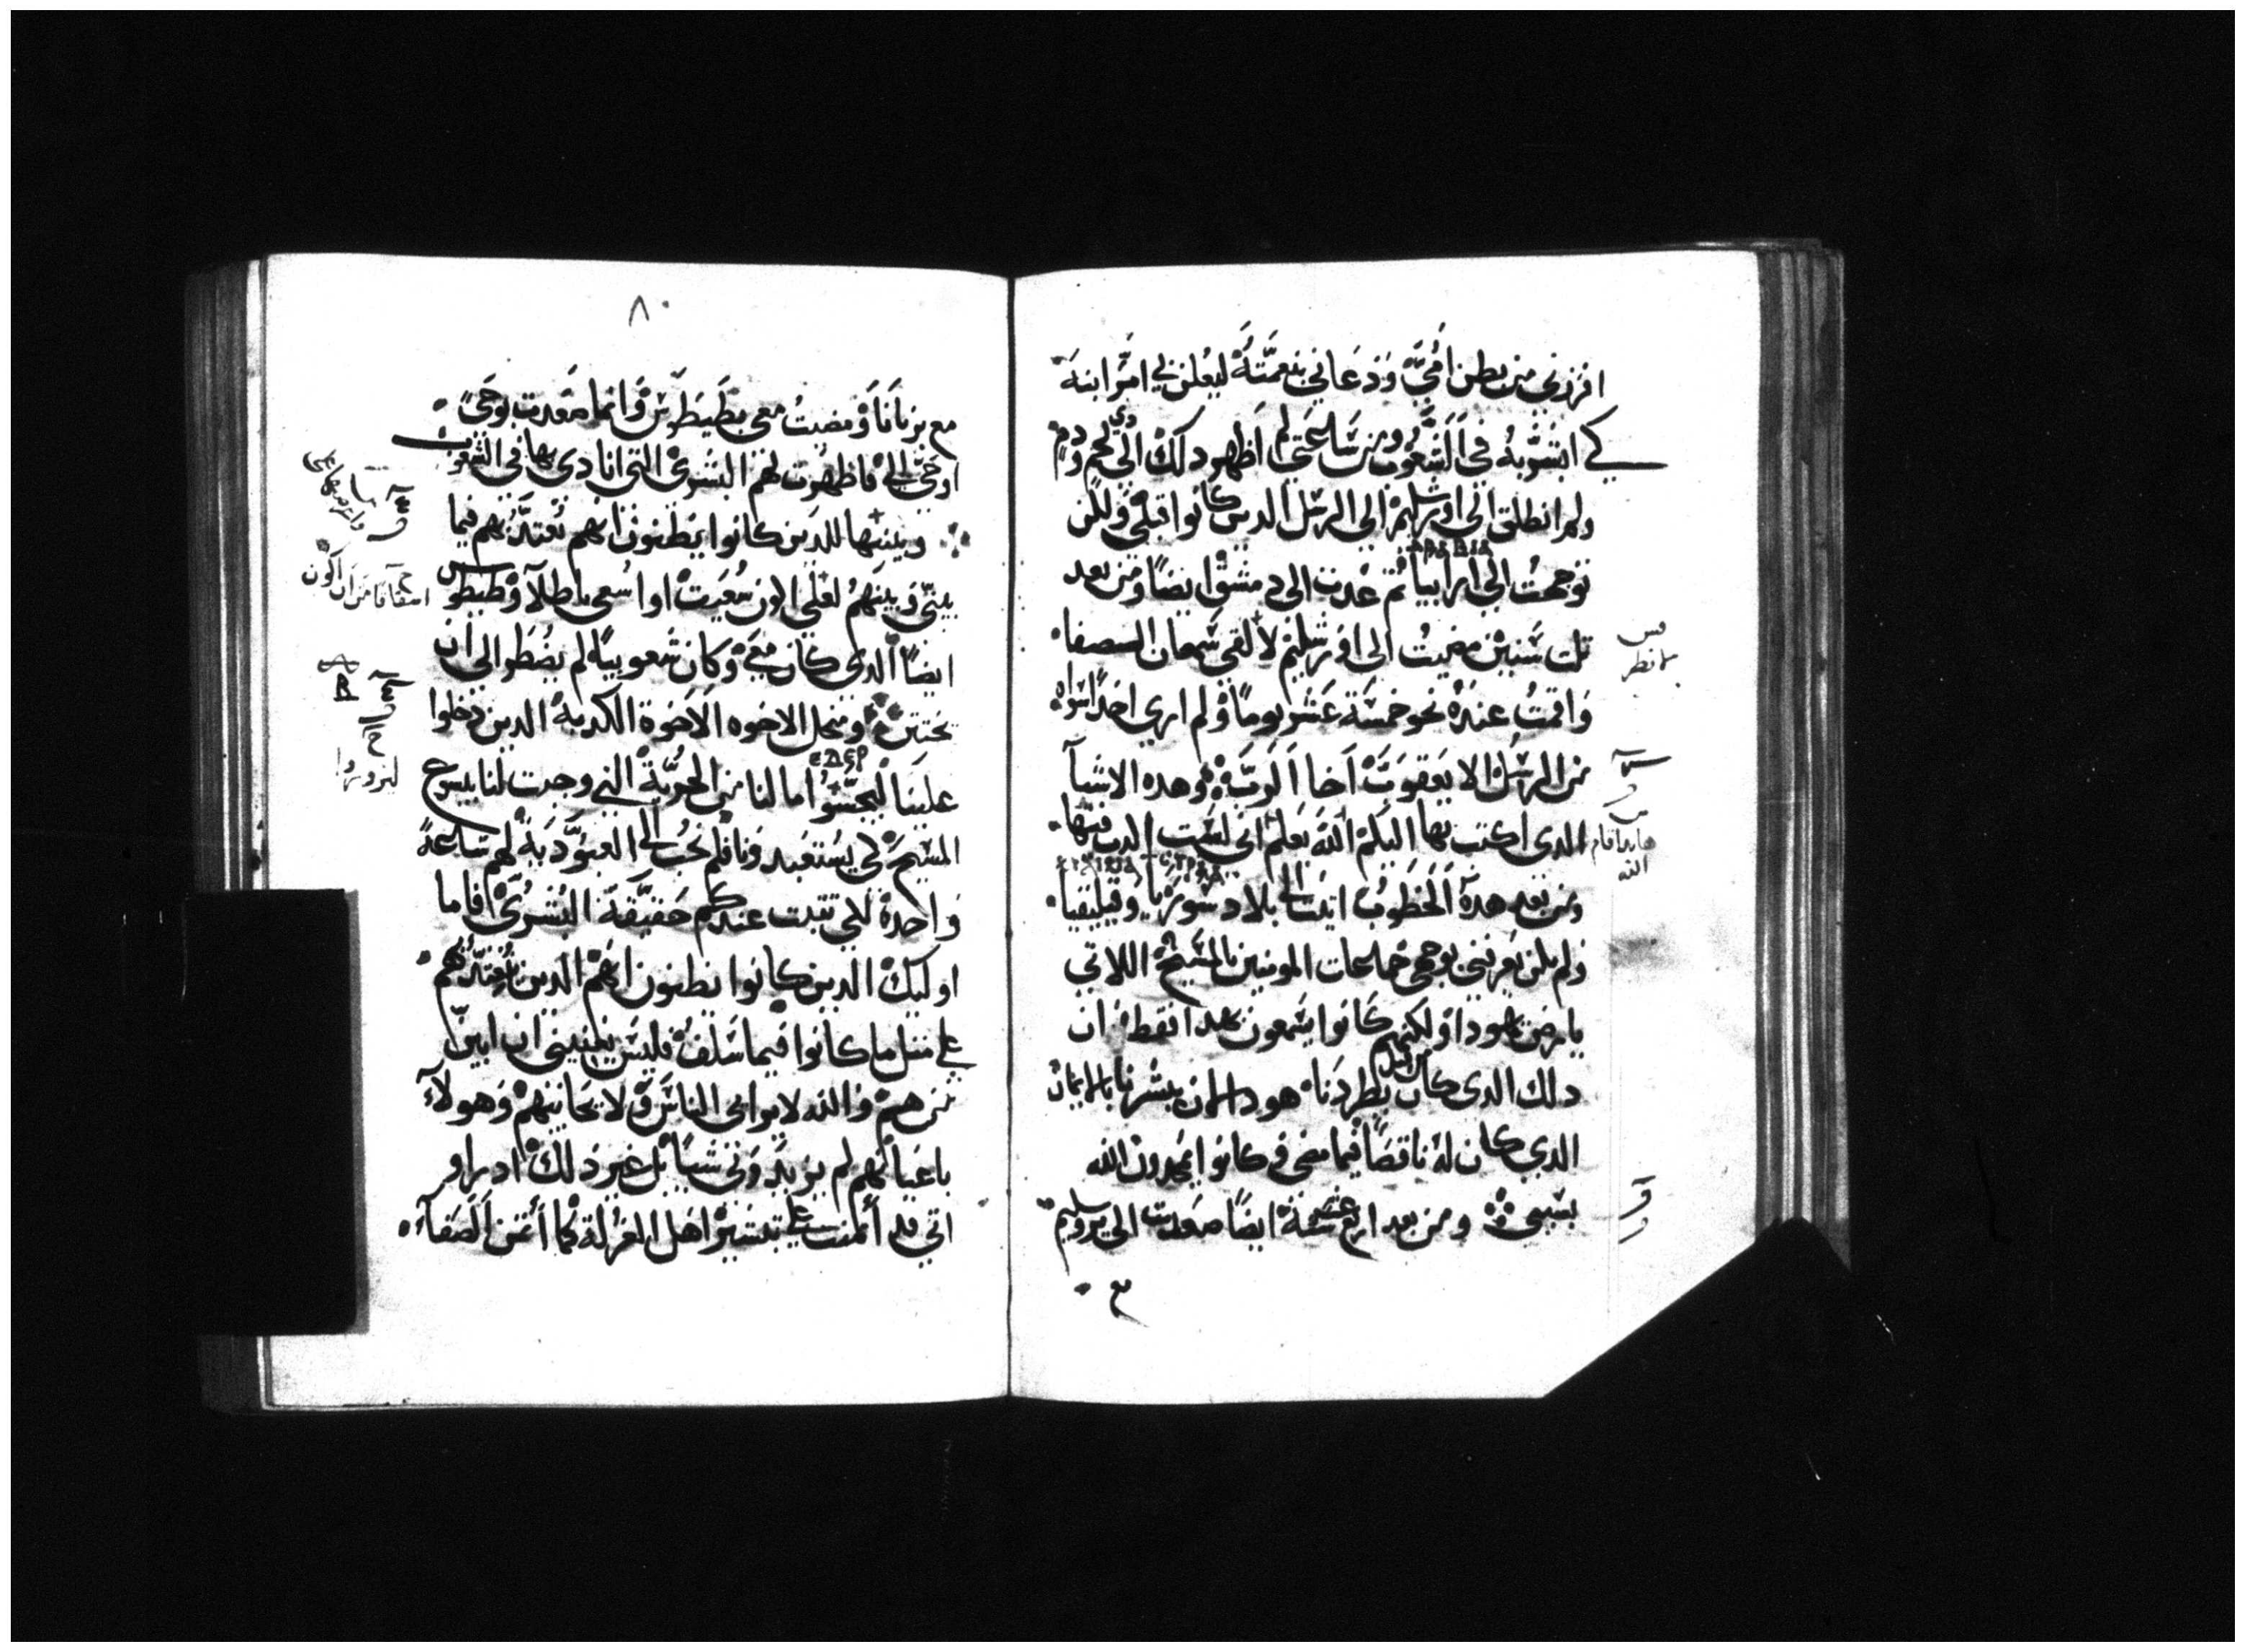 افرزني من بطن امي ودعاني بنعمته ليعلن في امر ابنه
كي ابشر به في الشعوب ومن ساعتي لم اظهر دلك الى دي لحم ودم
ولم انطلق الى اورشليم الى الرسل الدين كانوا قبلي ولكن
توجهت الى ارابيا ثم عدت الى دمشق ايضا ومن بعد
تلت سنين مضيت الى اورشليم لالقي سمعان الصفا
واقمت عنده نحو خمسة عشر يوما ولم ارى احدا سواه
من الرسل الا يعقوب اخا الرب وهده الاشيا
الدى اكتب بها اليكم الله يعلم اني لست اكدب فيها
ومن بعد هده الخطوب اتيت الى بلاد سوريا وقيليقيا
ولم يكن يعرفني بوجهي جماعات المومنين بالمسيح اللاتي
بارض يهودا ولكنهم كانوا يسمعون هدا فقط ان
دلك الدى كان من قبل يطردنا هودا الان يبشرنا بالايمان
الدي كان له ناقضا فيما مضى وكانوا يمجدون الله
بسببي ومن بعد اربع عشر سنة ايضا صعدت الى يروشليم
مع
٨٠
مع برنابا ومضيت معي بطيطوس وانما صعدت بوحي
اوحي الي فاظهرت لهم البشرى التي انادى بها في الشعوب
وبينتها للدين كانوا يظنون انهم يعتد بهم فيما
بيني وبينهم لعلي الان سعيت او اسعى باطلا وطيطوس
ايضا الدى كان معي وكان شعوبيا لم يضطر الى ان
يختتن ومن اجل الاخوه الاخوة الكدبة الدين دخلوا
علينا ليجسوا ما لنا من الحرية التي وجدت لنا بيسوع
المسيح لكي يستعبدونا فلم نجب الى العبودية لهم ساعة
واحدة لكي تتبت عندكم حقيقة البشرى فاما
اوليك الدين كانوا يظنون انهم الدين يعتد بهم
على متل ما كانوا فيما سلف فليس يعنيني ان ابين
من هم والله لا يرائى الناس ولا يحابيهم وهولاء
باعيانهم لم يزيدوني شيا بل غير ذلك اد راو
اني قد أتمنت على تبشير اهل الغرلة كما اتمن الصفا